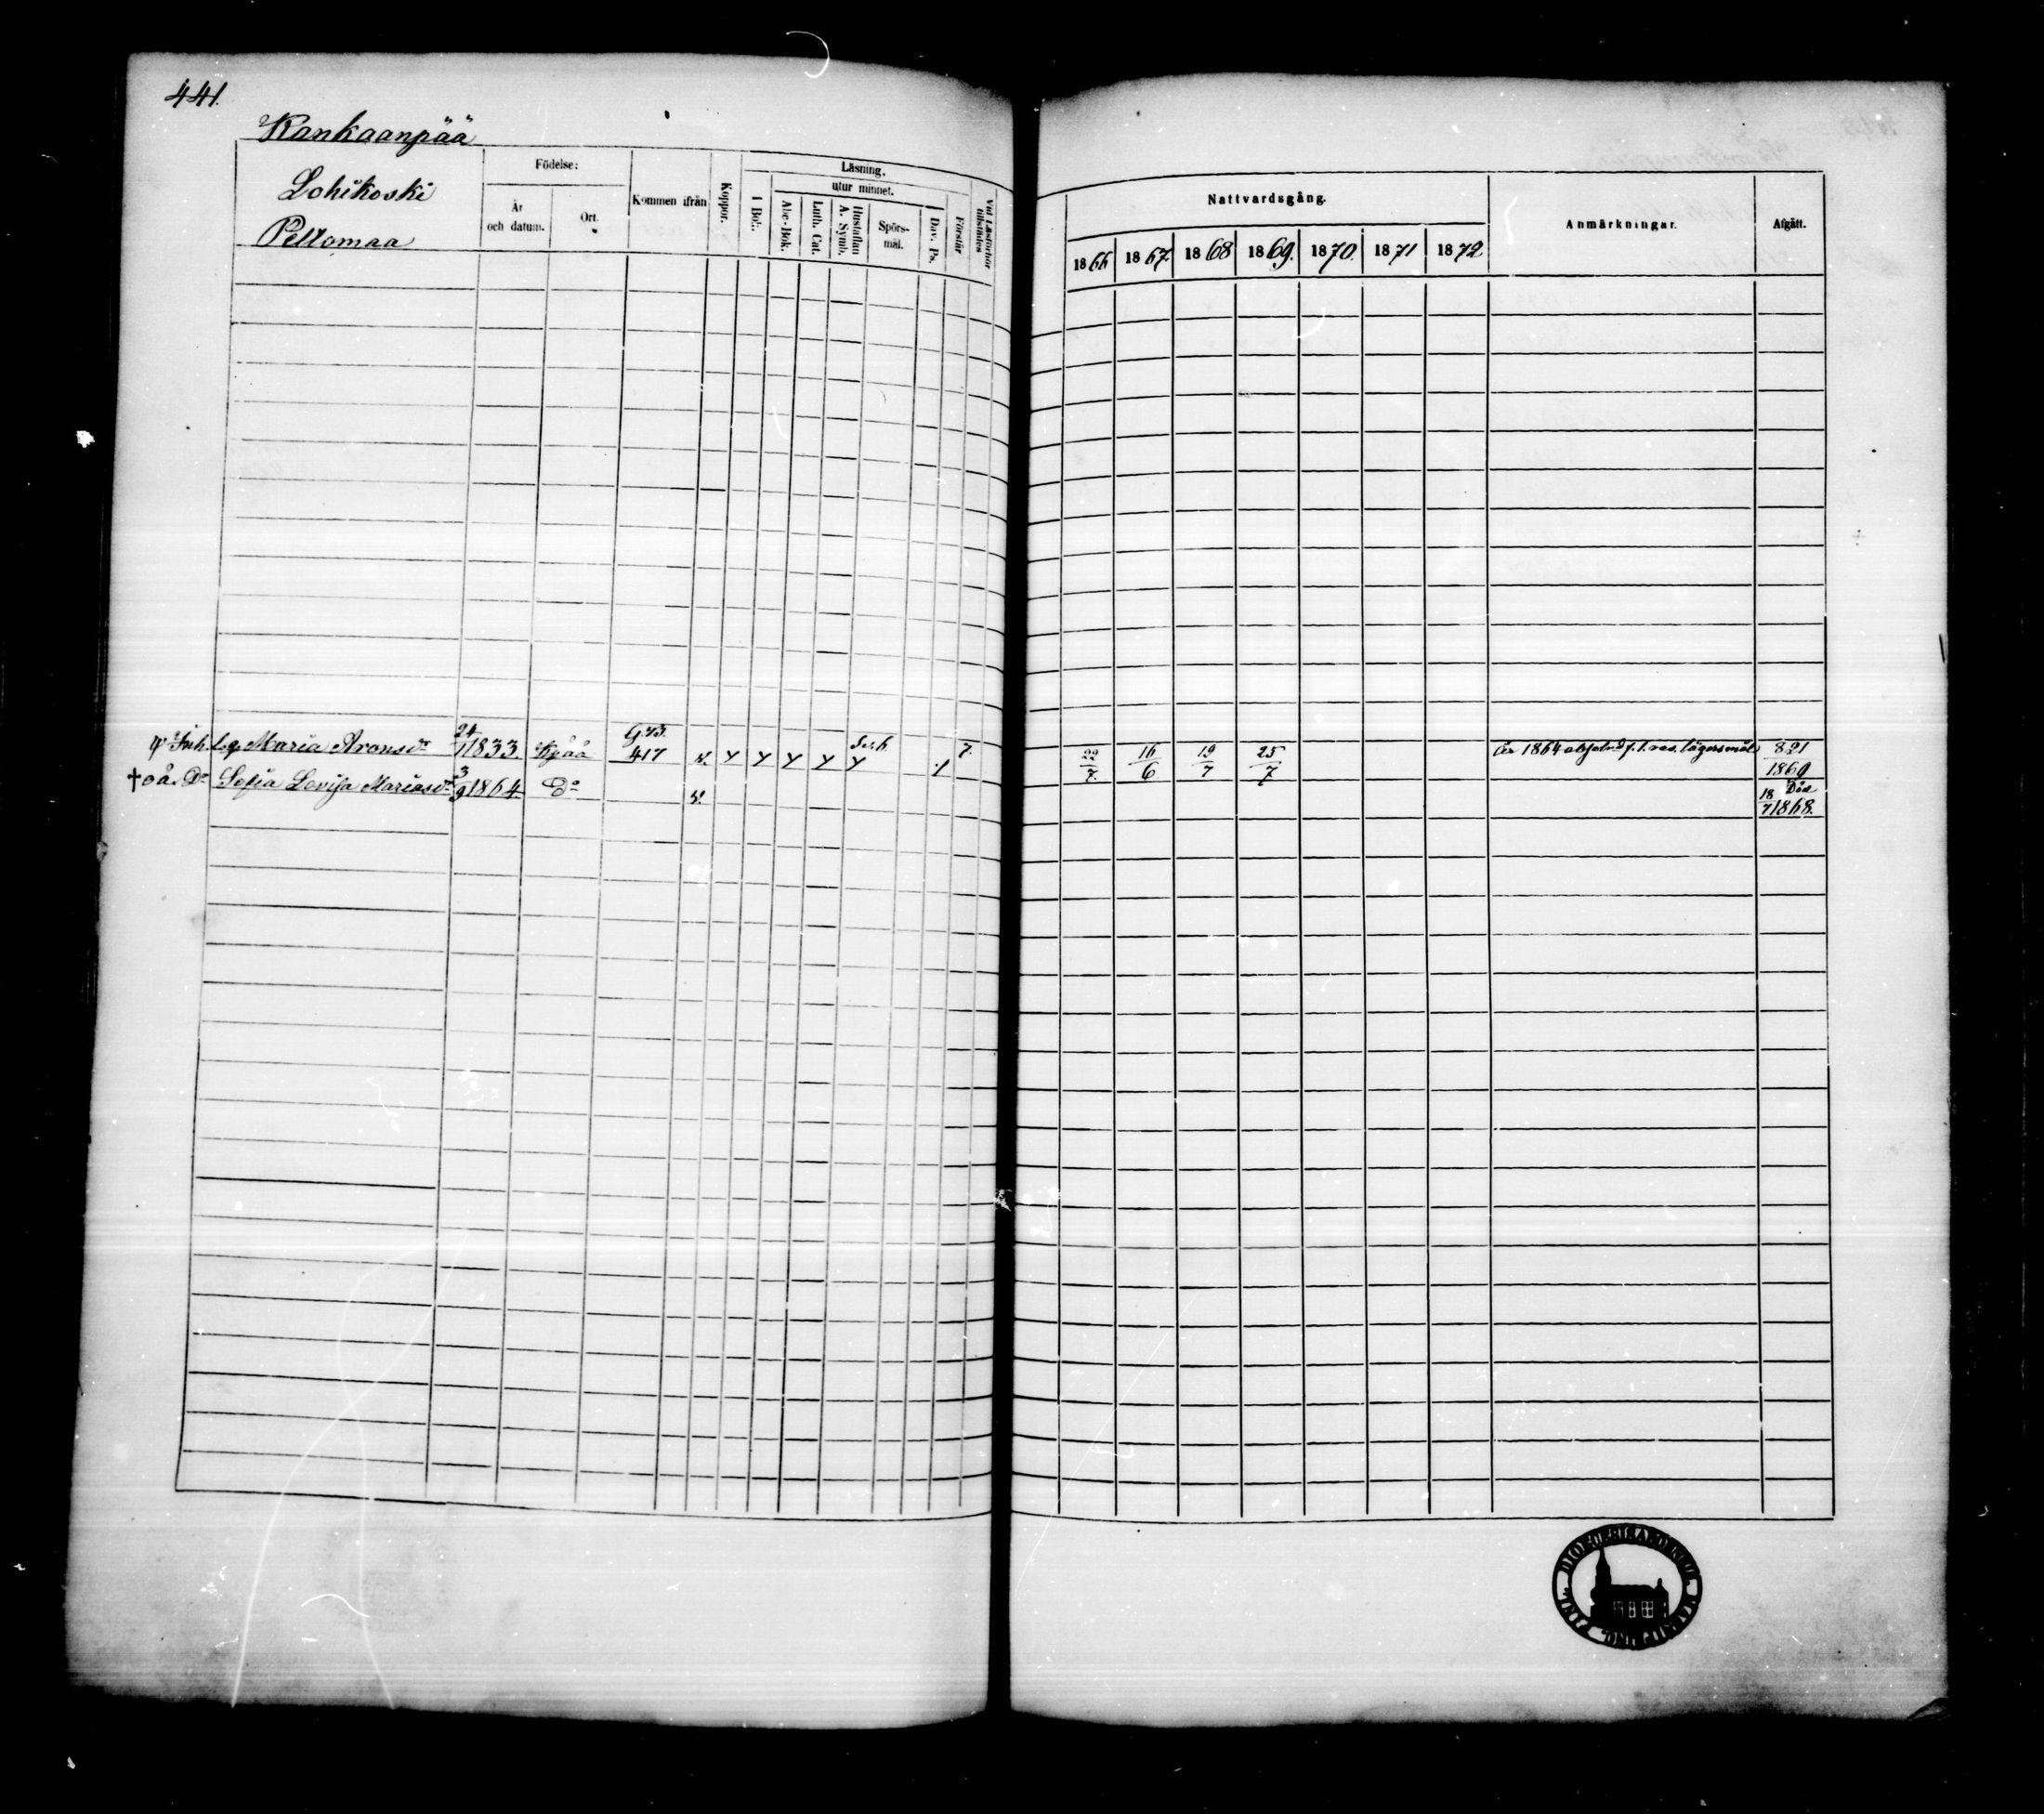 441.
Kankaanpää
Lohikoski
Peltomaa
Födelse:
År och datum.
Ort.
Kommen ifrån
Koppor.
Läsning.
I Bok.
utur minnet.
Abc-Bok.
Luth. Cat.
Hustaflan A. Symb.
Spörsmål.
Dav. Ps.
Förstår
Vid Läsförhör tillstädes
Nattvardsgång.
1866 1867. 1868 1869. 1870. 1871 1872
Anmärkningar.
Afgått.
Inh. Maria Aronsdr 24/1 1833. Kpää 417 v. 7. 22/7. 16/6 19/7 25/7 år 1864 absolv.d f. 1. res. lägersmål 821 1869
†oä. Do Sofia Lovisa Mariasdr 3/9 1864 Do v. Död 18/7 1868.